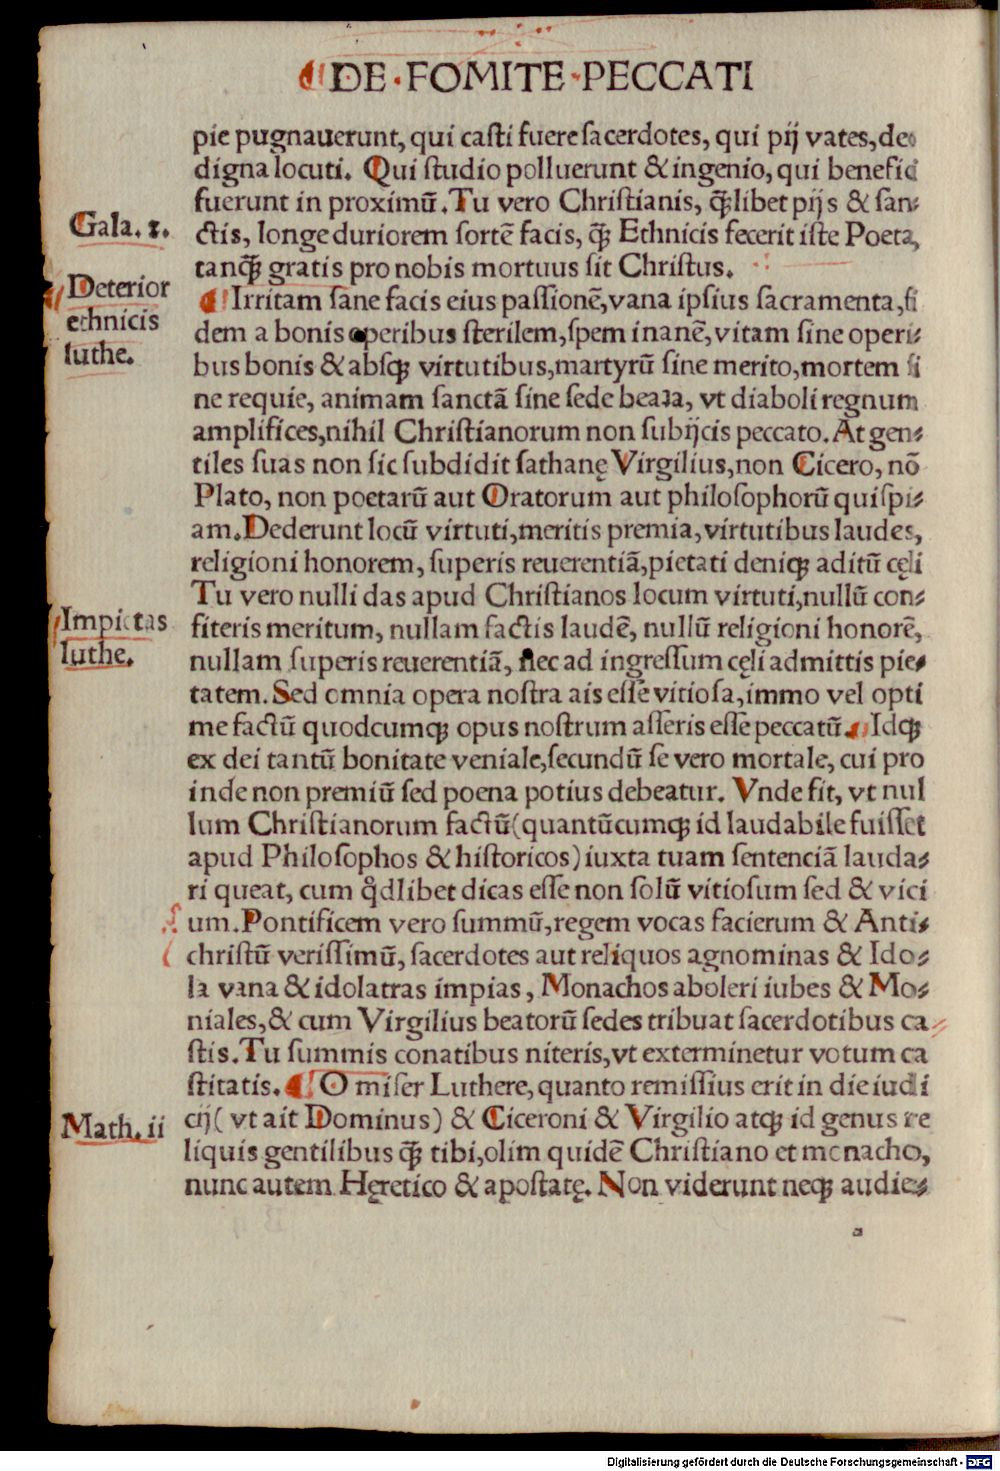 DE · FOMITE · PECCATI
pie pugnauerunt, qui casti fuere sacerdotes, qui pij vates, deo
digna locuti. Qui studio polluerunt & ingenio, qui benefici
fuerunt in proximū. Tu vero Christianis, q̃libet pijs & san-
Gala. 2.
ctis, longe duriorem sortē facis, q̃ꝫ Ethnicis fecerit iste Poeta,
tanq̃ꝫ gratis pro nobis mortuus sit Christus.
Deterior
ethnicis
luthe.
¶ Irritam sane facis eius passionē, vana ipsius sacramenta, fi
dem a bonis operibus sterilem, spem inanē, vitam sine operi-
bus bonis & absqꝫ virtutibus, martyrū sine merito, mortem si
ne requie, animam sanctā sine sede beata, vt diaboli regnum
amplifices, nihil Christianorum non subijcis peccato. At gen-
tiles suas non sic subdidit sathanę Virgilius, non Cicero, nō
Plato, non poetarū aut Oratorum aut philosophorū quispi-
am. Dederunt locū virtuti, meritis premia, virtutibus laudes,
religioni honorem, superis reuerentiā, pietati deniqꝫ aditū cęli
Tu vero nulli das apud Christianos locum virtuti, nullū con-
Impietas
luthe.
fiteris meritum, nullam factis laudē, nullū religioni honorē,
nullam superis reuerentiā, nec ad ingressum cęli admittis pie-
tatem. Sed omnia opera nostra ais esse vitiosa, immo vel opti
me factū quodcumqꝫ opus nostrum asseris esse peccatū. ¶ Idqꝫ
ex dei tantū bonitate veniale, secundū se vero mortale, cui pro
inde non premiū sed poena potius debeatur. Vnde fit, vt nul
lum Christianorum factū (quantūcumqꝫ id laudabile fuisset
apud Philosophos & historicos) iuxta tuam sentenciā lauda-
ri queat, cum qđlibet dicas esse non solū vitiosum sed & vici
um. Pontificem vero summū, regem vocas facierum & Anti-
christū verissimū, sacerdotes aut reliquos agnominas & Ido-
la vana & idolatras impias, Monachos aboleri iubes & Mo-
niales, & cum Virgilius beatorū sedes tribuat sacerdotibus ca
stis. Tu summis conatibus niteris, vt exterminetur votum ca
stitatis. ¶ O miser Luthere, quanto remissius erit in die iudi
Math. ii
cij (vt ait Dominus) & Ciceroni & Virgilio atqꝫ id genus re
liquis gentilibus q̃ꝫ tibi, olim quidē Christiano et monacho,
nunc autem Hęretico & apostatę. Non viderunt neqꝫ audie-
a
Digitalisierung gefördert durch die Deutsche Forschungsgemeinschaft - DFG